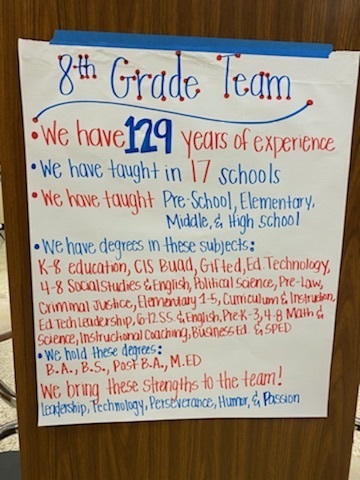 8th Grade Team
• We have 129 years of experience
• We have taught in 17 schools
• We have taught Pre-School, Elementary,
Middle, & High school
• We have degrees in these subjects:
K-8 education, CIS Buad, Gifted, Ed. Technology,
4-8 Social Studies & English, Political science, Pre-Law,
Criminal Justice, Elementary 1-5, Curriculum & Instruction,
Ed Tech Leadership, 6-12 S.S. & English, Pre K-3, 4-8 Math &
Science, Instructional Coaching, Business Ed. & SPED
• We hold these degrees:
B.A., B.S., Post B.A., M.ED
We bring these strengths to the team!
Leadership, Technology, Perseverance, Humor, & Passion